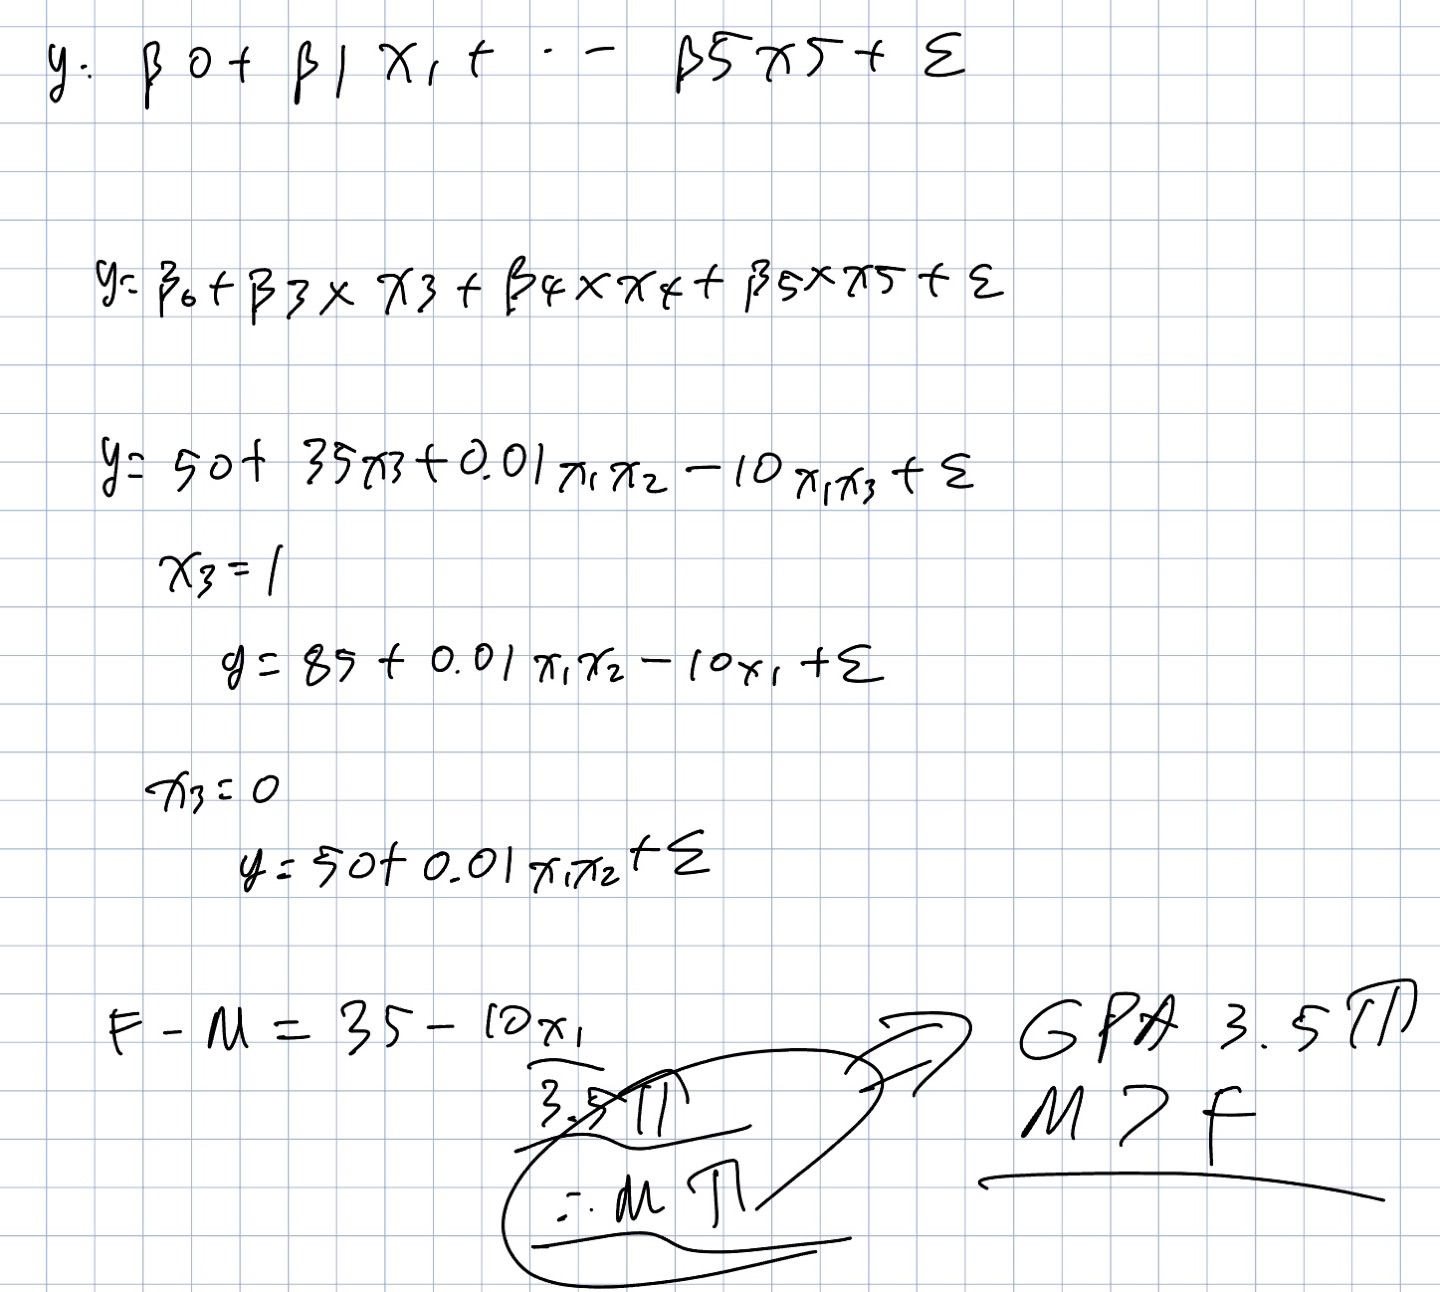 y: β0+ β1 x1 + ·· - β5x5+ ε
y= β0+β3× x3+β4×x4+β5×x5+ε
y= 50+ 35x3+0.01x1x2-10x1x3+ε
x3=1
y= 85+ 0.01x1x2-10x1+ε
x3=0
y= 50+ 0.01x1x2+ε
F-M = 35-10x1
3.5
M
GPA 3.5
M > F